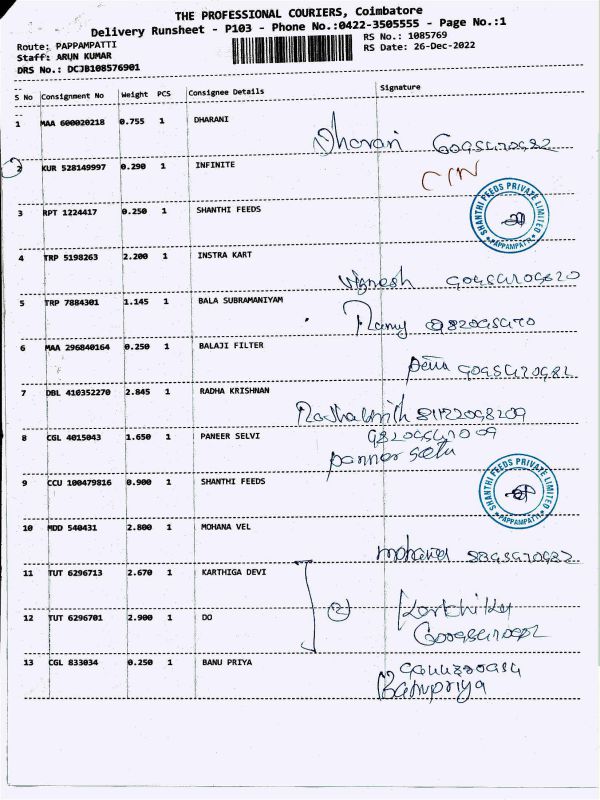 THE PROFESSIONAL COURIERS, Coimbatore
Delivery Runsheet - P103 - Phone No.:0422-3505555 - Page No.:1
Route: PAPPAMPATTI
RS No.: 1085769
Staff: ARUN KUMAR
RS Date: 26-Dec-2022
DRS No.: DCJB108576901
S No Consignment No Weight PCS Consignee Details Signature
1 MAA 600020218 0.755 1 DHARANI
Dharani
2 KUR 528149997 0.290 1 INFINITE
CIN
3 RPT 1224417 0.250 1 SHANTHI FEEDS
SHANTHI FEEDS PRIVATE LIMITED
* PAPPAMPATTI *
4 TRP 5198263 2.200 1 INSTRA KART
Vignesh
5 TRP 7884301 1.145 1 BALA SUBRAMANIYAM
6 MAA 296840164 0.250 1 BALAJI FILTER
7 DBL 410352270 2.845 1 RADHA KRISHNAN
8 CGL 4015043 1.650 1 PANEER SELVI
9 CCU 100479816 0.900 1 SHANTHI FEEDS
SHANTHI FEEDS PRIVATE LIMITED
* PAPPAMPATTI *
10 MDD 540431 2.800 1 MOHANA VEL
mohana
11 TUT 6296713 2.670 1 KARTHIGA DEVI
2
12 TUT 6296701 2.900 1 DO
13 CGL 833034 0.250 1 BANU PRIYA
Banupriya